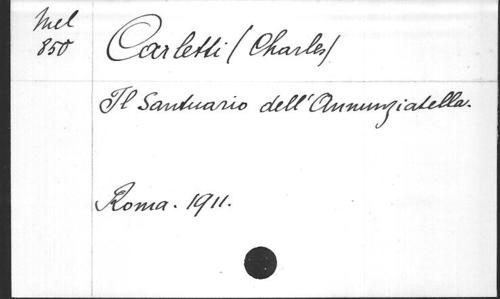 Mel
850
Carletti (Charles)
Il Santuario dell'Annunziatella.
Roma. 1911.